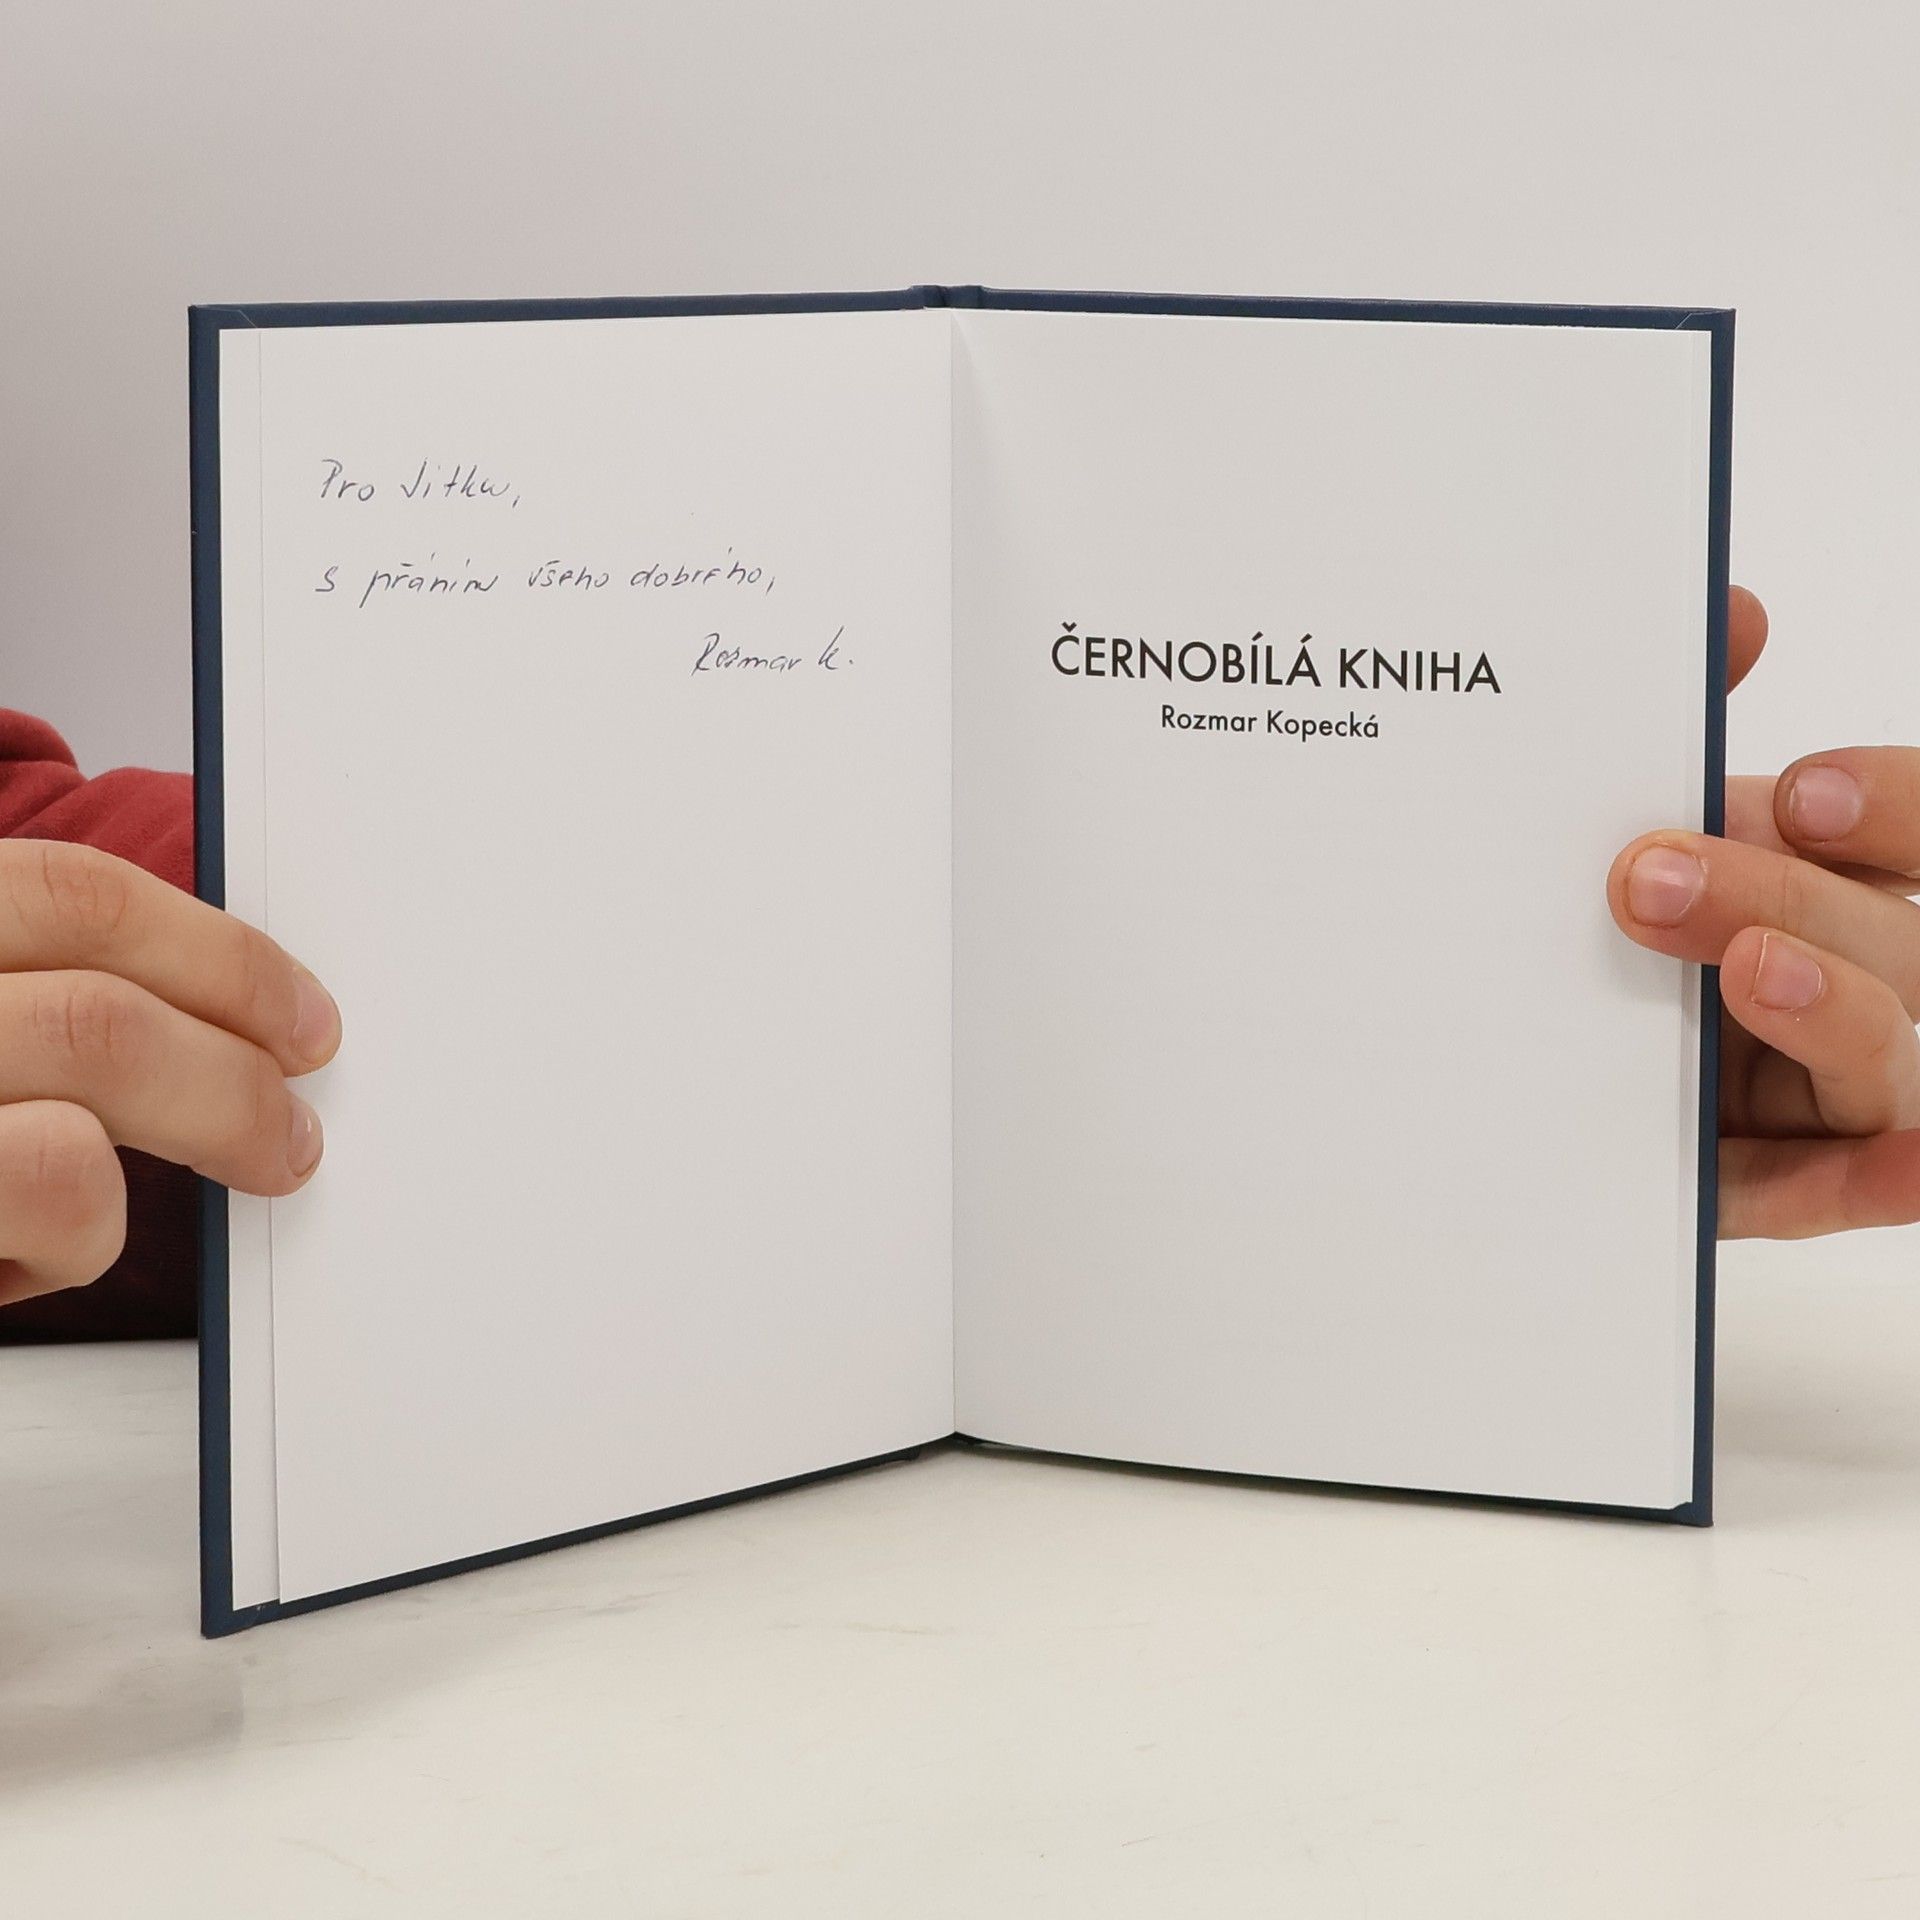 Pro Jitku,
s přáním všeho dobrého,
Rozmar K.
ČERNOBÍLÁ KNIHA
Rozmar Kopecká